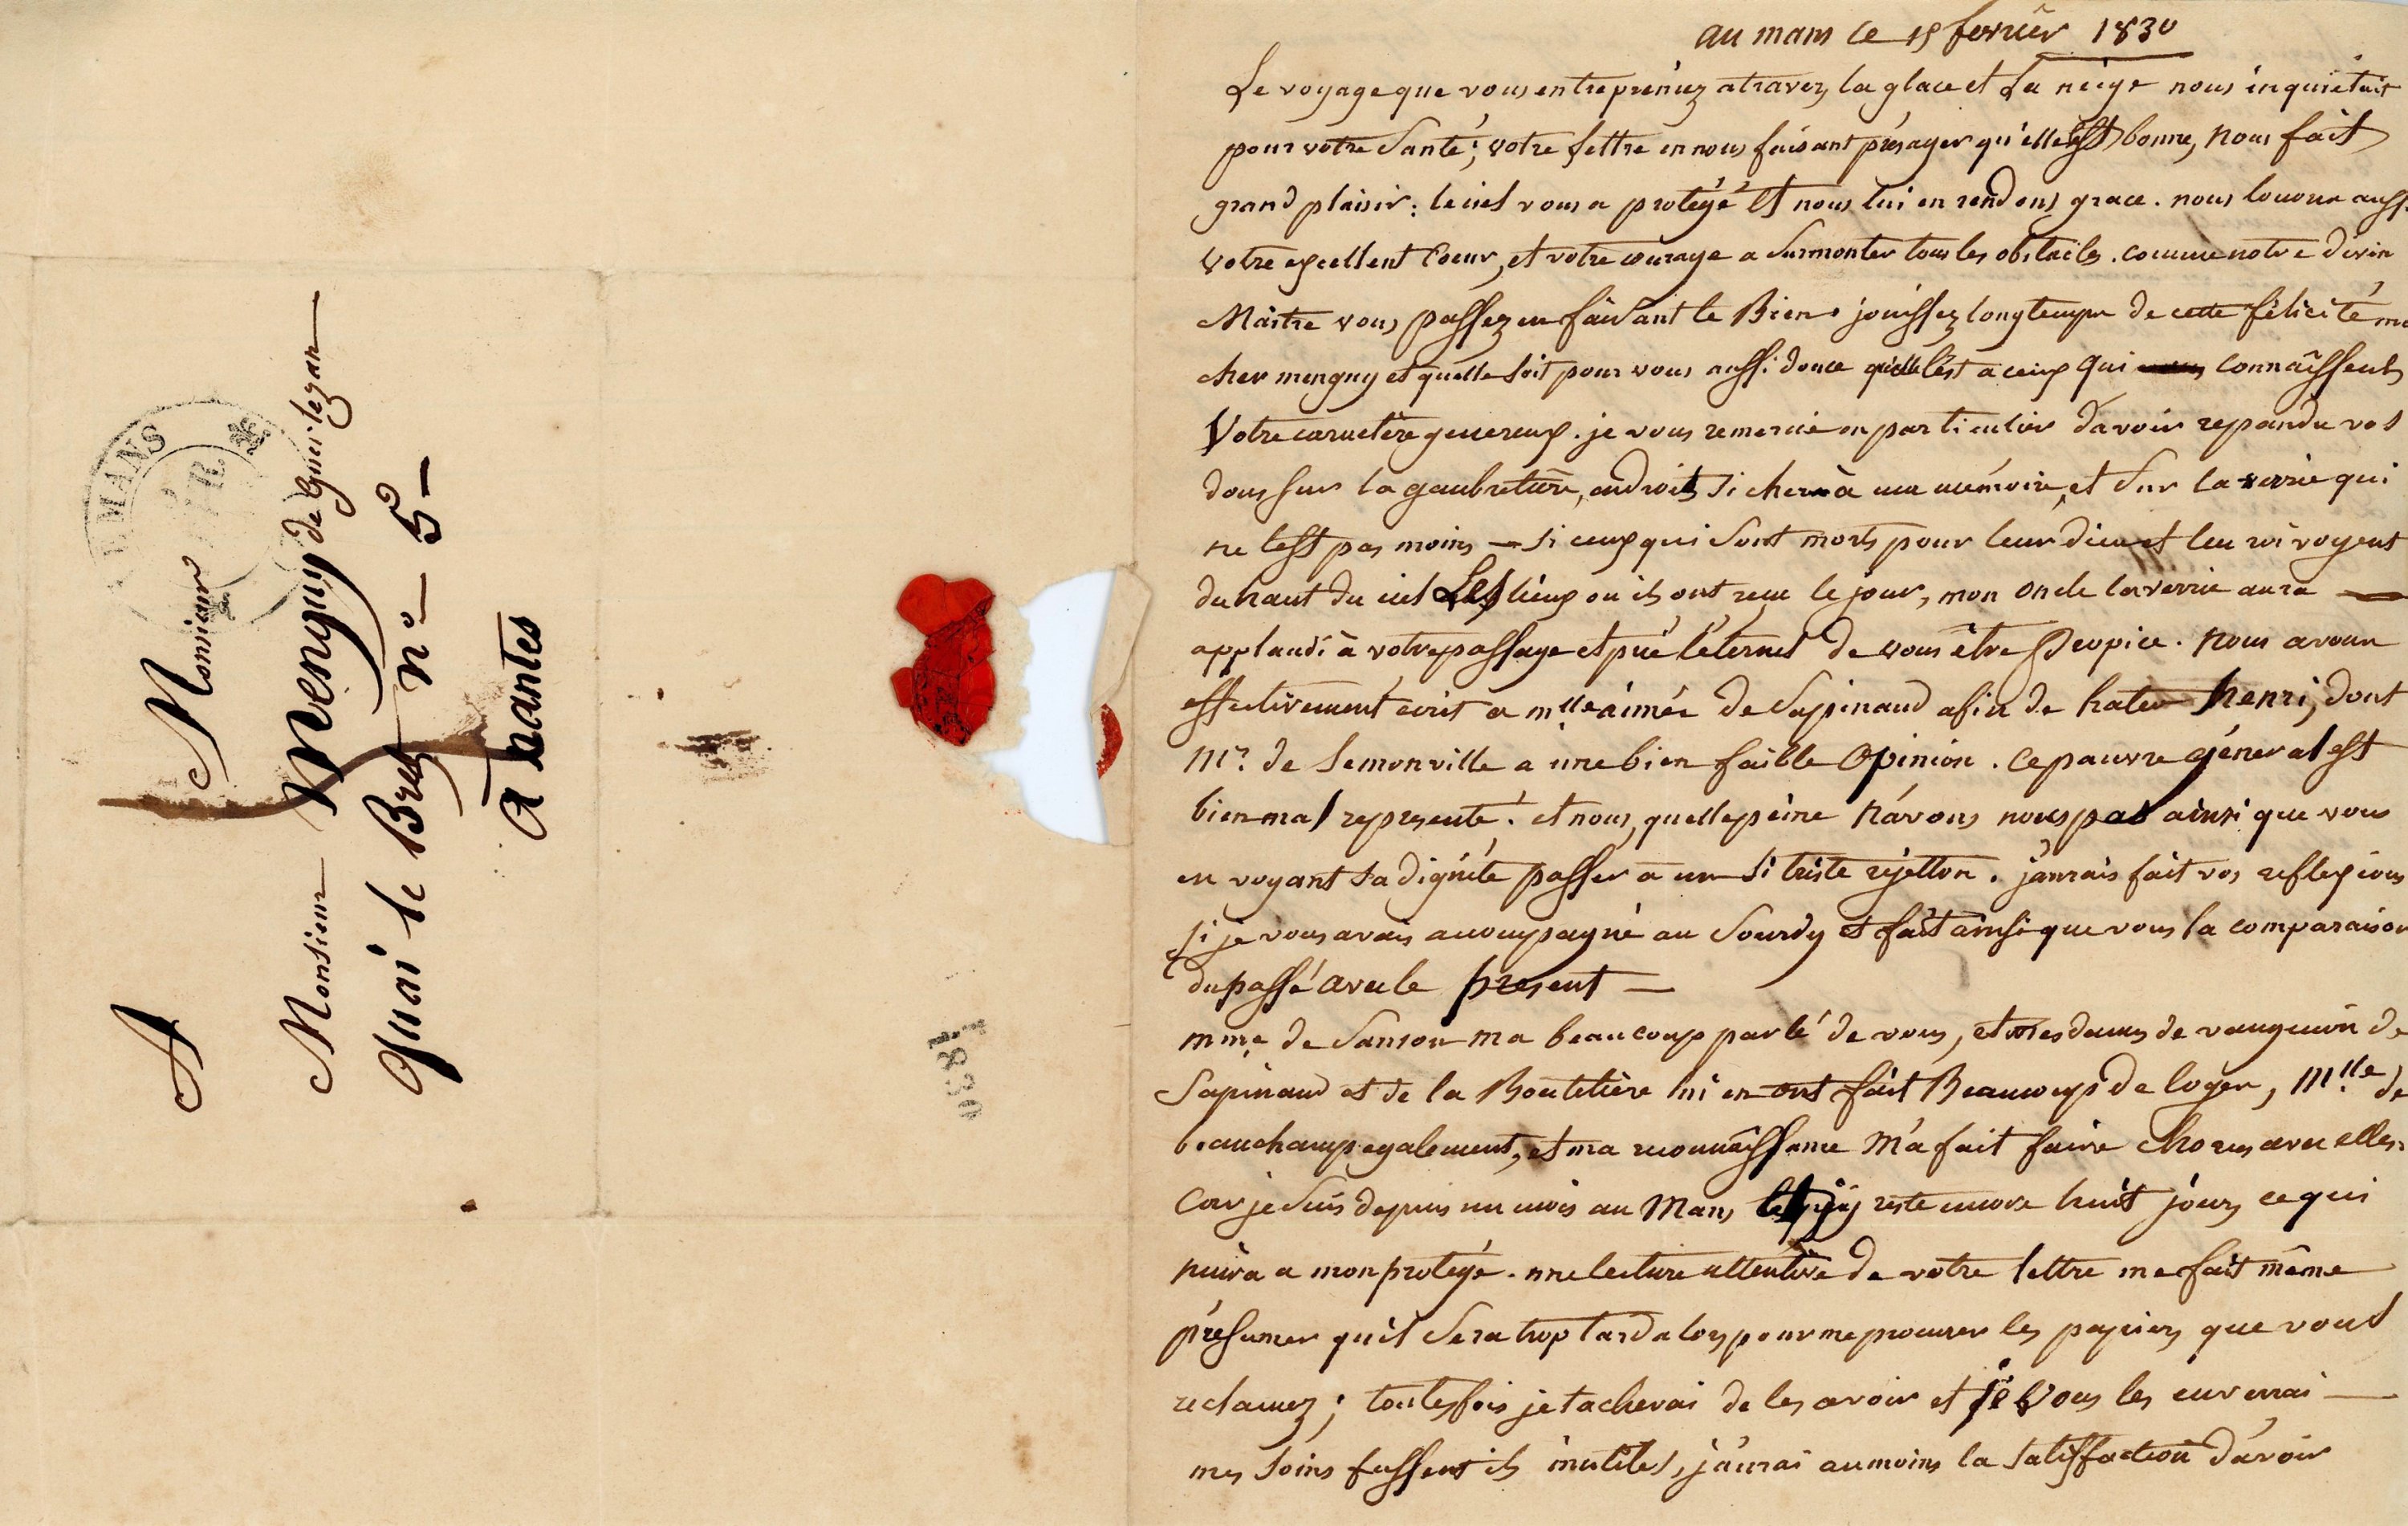 A Monsieur
Monsieur Menguy de Guerilezan
Quai le Bret n° 5
A nantes
MANS
1830
au mans le 15 fevrier 1830
Le voyage que vous entrepreniez atravers la glace et La neige nous inquietait
pour votre Santé; votre lettre en nous faisant présager qu'elle est bonne, nous fait
grand plaisir: le ciel vous a protégé et nous lui en rendons grace. nous louons aussi
votre excellent Coeur, et votre courage a Surmonter tous les obstacles. comme notre divin
Maitre vous passez en faisant le Bien. jouissez longtemps de cette félicité mon
cher menguy et quelle soit pour vous aussi douce quelle lest a ceux qui connaissent
Votre caractère genereux. je vous remercie en particulier davoir repandu vos
dons sur la gaubretiere, endroit si cher à ma mémoire, et Sur la verrie qui
ne lest pas moins — si ceux qui sont morts pour leur dieu et leu roi voyent
du haut du ciel Les lieux ou ils ont recu le jour, mon oncle laverrie aura —
applaudi à votre passage et prié léternel de vous être propice. nous avons
effectivement ecrit a mlle aimée de Sapinaud afin de hater henri, dont
mr. de Semonville a une bien faible opinion. ce pauvre géneral est
bien mal representé. et nous, quelle peine n'avons nous pas ainsi que vous
en voyant sa dignité passer a un si triste rejetton. j'aurais fait vos reflexions
si je vous avais accompagné au Sourdy et fait ainsi que vous la comparaison
du passé avec le present —
mme de Sanson ma beaucoup parlé de vous, et mesdames de vauguion de
Sapinaud et de la Bouteliere lui en ont fait Beaucoup de loges, mlle de
beauchamp egalement, et ma reconnaissance m'a fait faire chorus avec elles.
Car je suis depuis un mois au Mans et jy reste encore huit jours ce qui
nuira a mon protégé. une lecture attentive de votre lettre me fait même
présumer quil Sera trop tard alors pour me procurer les papiers que vous
reclamez; toutesfois je tacherai de les avoir et je Vous les enverrai —
mes soins fussent ils inutiles, j'aurai aumoins la satisfaction d'avoir